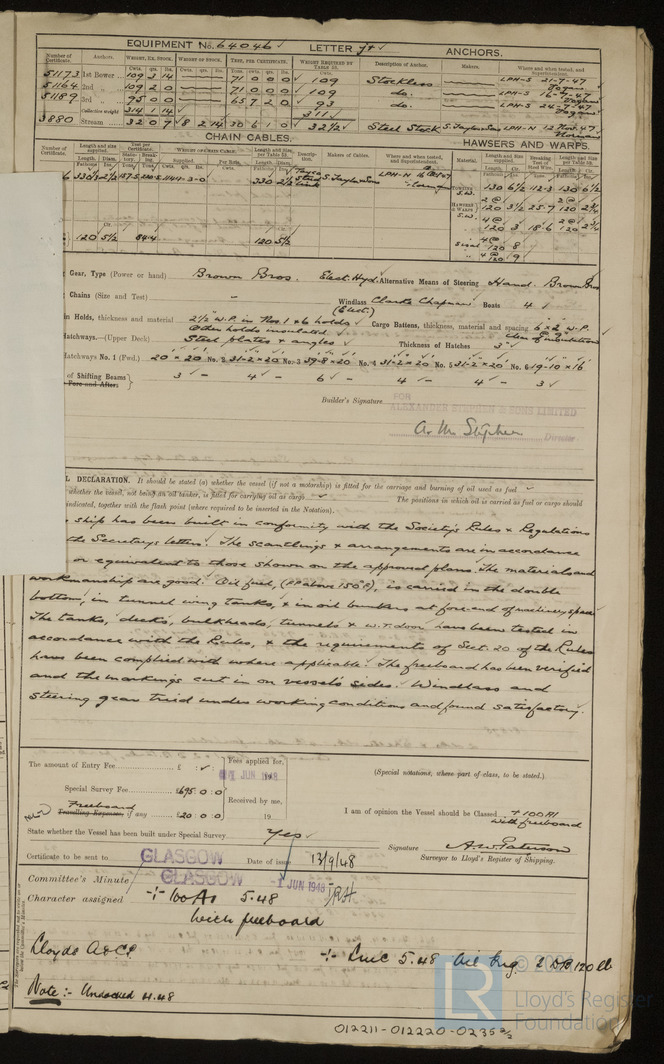 EQUIPMENT No. 64046 LETTER ft ANCHORS.
Number of Certificate. Anchors. WEIGHT, EX. STOCK. WEIGHT OF STOCK. TEST, PER CERTIFICATE. WEIGHT REQUIRED BY TABLE 53. Description of Anchor. Makers. Where and when tested, and Superintendent.
51173 1st Bower 109 3 14 71 0 0 0 109 Stockless LPH-S 21-7-47
51164 2nd 109 2 0 71 0 0 0 109 do. LPH-S 16-7-47
51189 3rd 95 0 0 65 7 2 0 93 do. LPH-S 24-7-47
Collective weight 314 1 14 311
3880 Stream 32 0 7 8 2 14 30 6 1 0 32½ Steel Stock S. Taylor & Sons LPH-N 12 Nov. 47
CHAIN CABLES. HAWSERS AND WARPS.
Number of Certificate. Length and size supplied. Test per Certificate. WEIGHT OF CHAIN CABLE. Length and size per Table 53. Description. Makers of Cables. Where and when tested, and Superintendent. Material. Length and size supplied. Breaking Test of Steel Wire. Length and size per Table 53.
330 2½ 1144-3-0 330 2½ Steel Link S. Taylor & Sons LPH-N
130 6½ 112.3 130 6½
HAWSERS & WARPS S.W. 2@ 120 3½ 25.7 2@ 120 2¾
4@ 120 3 18.6 2@ 120 2¾
120 5½ 84.4 120 5½
Sisal 4@ 120 8
4@ 120 9
Gear, Type (Power or hand) Brown Bros. Elect. Hyd. Alternative Means of Steering Hand. Brown Bros
Chains (Size and Test) " Windlass Clarke Chapman (Elect.) Boats 4
in Holds, thickness and material 2½" W.P. in Nos. 1 & 6 holds Cargo Battens, thickness, material and spacing 6 x 2" W.P.
Other holds insulated
Hatchways.—(Upper Deck) Steel plates & angles Thickness of Hatches 3"
Hatchways No. 1 (Fwd.) 20 x 20 No. 2 31-2 x 20 No. 3 39-8 x 20 No. 4 31-2 x 20 No. 5 31-2 x 20 No. 6 19-10 x 16
of Shifting Beams 3 4 6 4 4 3
or Fore and Afters
Builder's Signature FOR ALEXANDER STEPHEN & SONS LIMITED
A. M. Stephen Director
L DECLARATION. It should be stated (a) whether the vessel (if not a motorship) is fitted for the carriage and burning of oil used as fuel
whether the vessel, not being an oil tanker, is fitted for carrying oil as cargo The positions in which oil is carried as fuel or cargo should
indicated, together with the flash point (where required to be inserted in the Notation).
ship has been built in conformity with the Society's Rules & Regulations
the Secretary's letters. The scantlings & arrangements are in accordance
or equivalent to those shown on the approved plans. The materials and
workmanship are good. Oil fuel, (F.P. above 150°F), is carried in the double
bottom, in tunnel wing tanks, & in oil bunkers at fore-end of machinery space
The tanks, decks, bulkheads, tunnels & W.T. door have been tested in
accordance with the Rules, & the requirements of Sect. 20 of the Rules
have been complied with where applicable. The freeboard has been verified
and the markings cut in on vessel's sides. Windlass and
steering gear tried under working conditions and found satisfactory.
The amount of Entry Fee £ : : Fees applied for,
1 JUN 1948
(Special notations, where part of class, to be stated.)
Special Survey Fee £695 : 0 : 0
Freeboard Received by me,
Travelling Expenses, if any £20 : 0 : 0 19
I am of opinion the Vessel should be Classed + 100A1
With freeboard
State whether the Vessel has been built under Special Survey Yes
Signature A. W. Paterson
Surveyor to Lloyd's Register of Shipping.
Certificate to be sent to GLASGOW Date of issue 13/9/48
Committee's Minute GLASGOW -1 JUN 1948
Character assigned + 100A1 5.48
With freeboard
Lloyds A & CP + LMC 5.48 Oil Eng. 2 DB 120 lb
Note :- Undocked 4.48
© 20
LR
Lloyd's Register
Foundation
012211-012220-0235 2/2